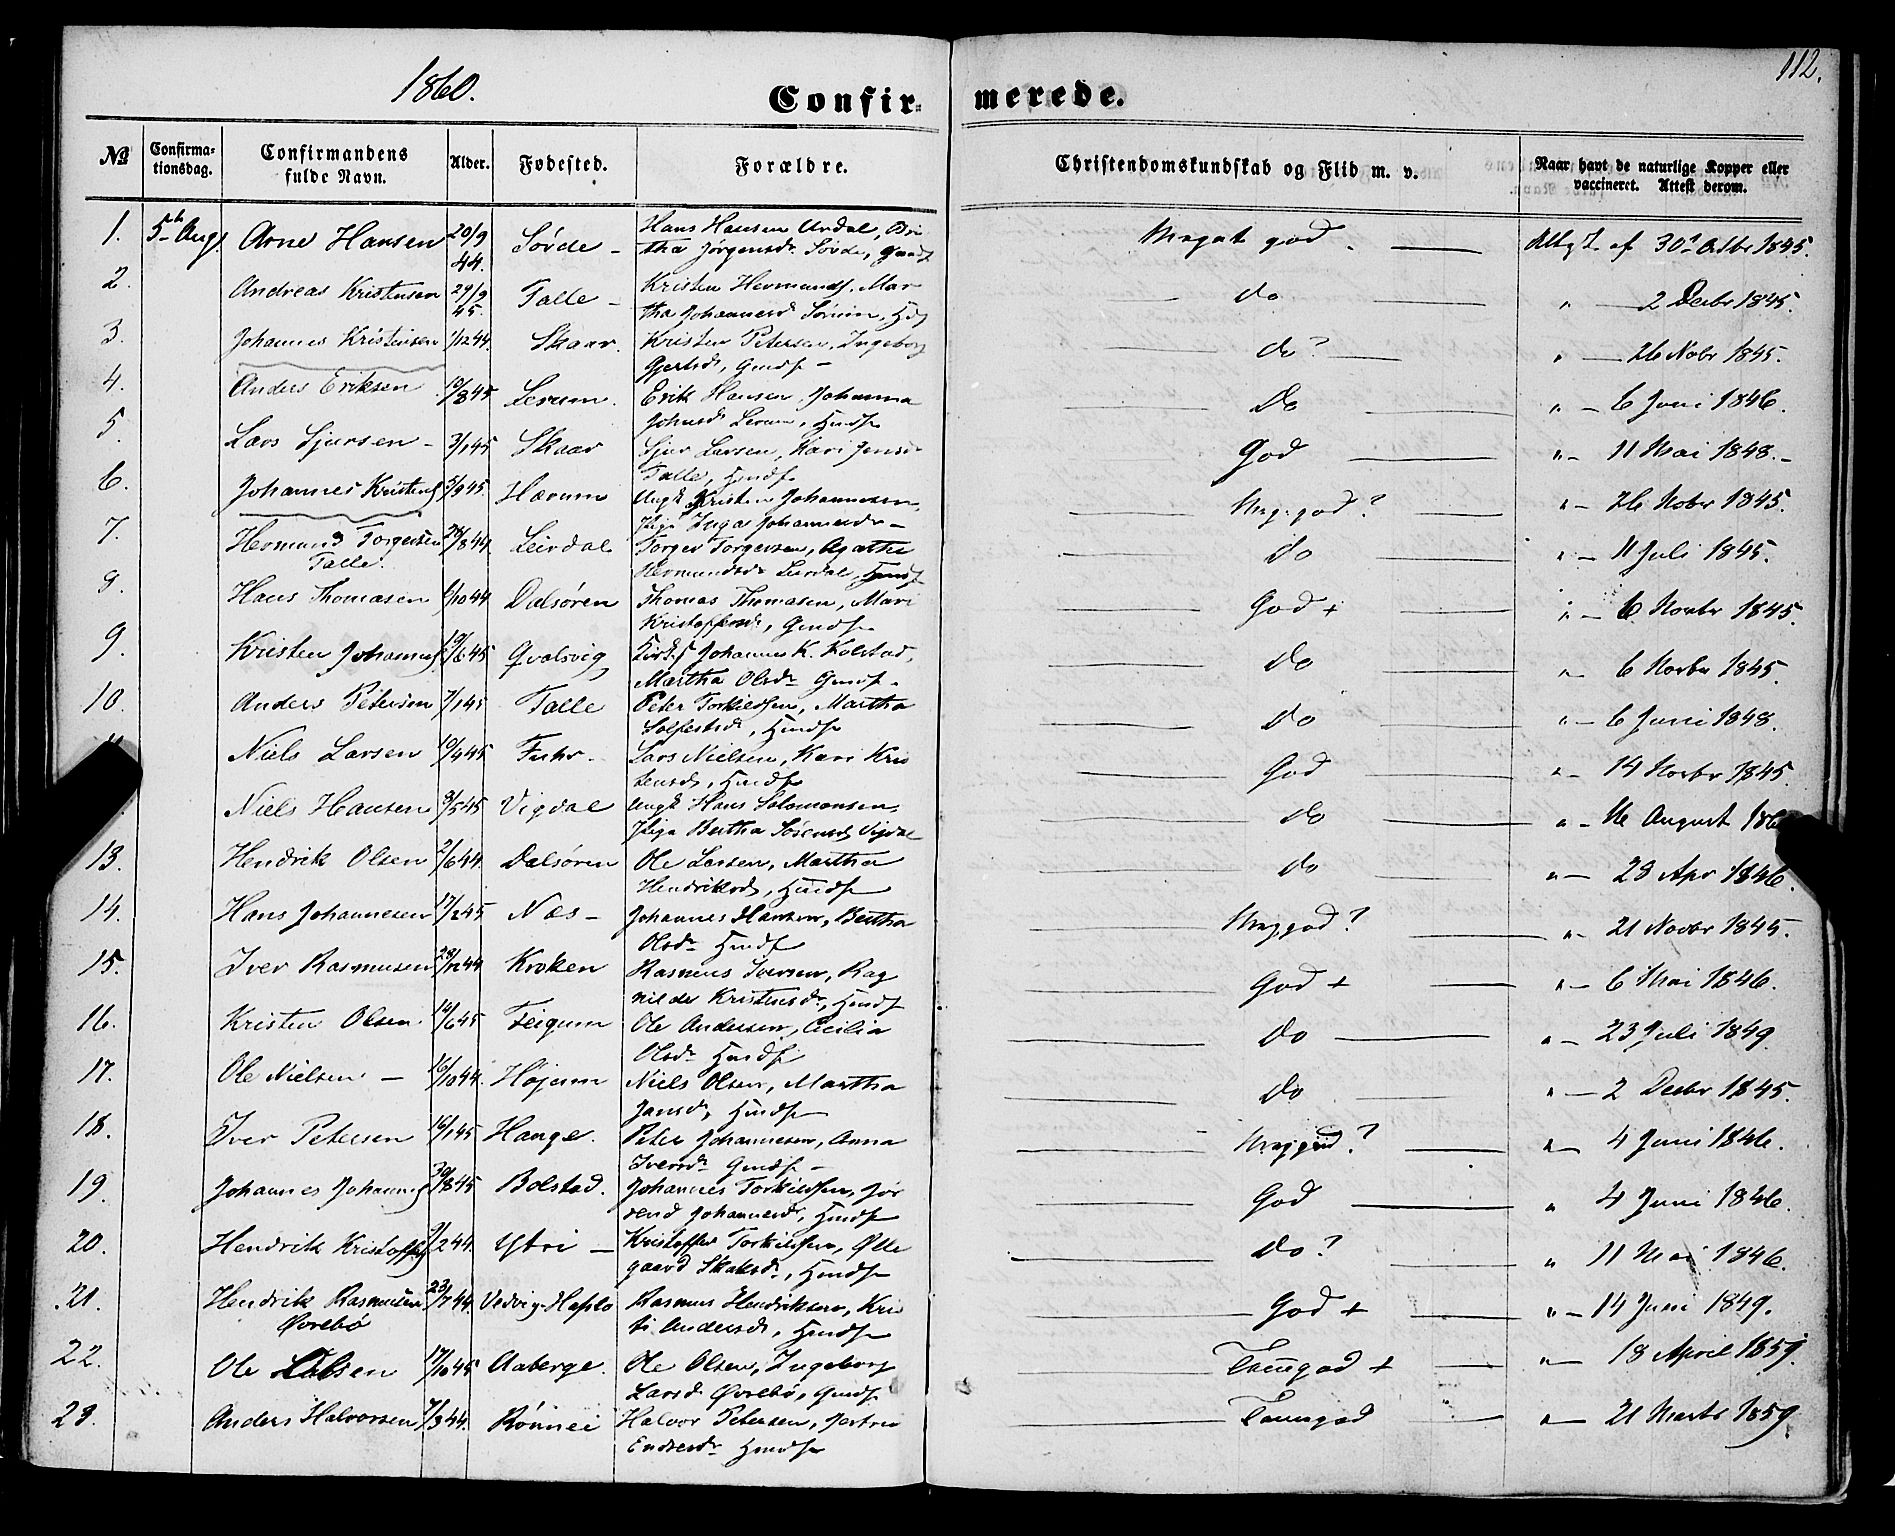 1860.
112.
Confir-
merede.
No
Confirma-
tionsdag.
Confirmandens
fulde Navn.
Alder.
Fødested.
Forældre.
Christendomskundskab og Flid m. v.
Naar havt de naturlige Kopper eller
vaccineret. Attest derom.
1. 5te Augs Arne Hansen 20/9 44. Sørde - Hans Hansen Urdal, Bri
tha Jørgensdr Sørde, Gmdsf Meget god. Attest af 30t Octbr 1845.
2. Andreas Kristensen 29/9 45. Talle - Kristen Hermunds, Mar
tha Johannesdr Sørum, Hdsf do " 2 Decbr 1845.
3. Johannes Kristensen 1/12 44. Skaar. Kristen Petersen, Ingeborg
Gjertsdr, Gmdsf - do? " 26 Nobr 1845.
4. Anders Eriksen 10/8 45 Lerum. Erik Hansen, Johanna
Johnsdr Lerum, Hmdsf Do " - 6 Juni 1846.
5. Lars Sjursen - 3/1 45 Skaar Sjur Larsen, Kari Jensdr
Talle, Hmdsf God " - 11 Mai 1848. -
6. Johannes Kristens 5/9 45. Hærum Ungk Kristen Johannesen,
Pige Inga Johannesdr - Meg. god? " - 26 Nobr 1845.
7. Hermund Torgersen 28/8 44 Leirdal Torger Torgersen, Agatha
Talle. Hermundsdr Leirdal, Hmdsf do " - 11 Juli 1845.
8. Hans Thomasen 6/10 44 Dalsøren Thomas Thomasen, Mari
Kristoffersdr, Gmdsf. God + " - 6 Novbr 1845.
9. Kristen Johannes 19/6 45 Qvalsvig Johannes K. Kolstad,
Martha Olsdr Gmdsf. do " - 6 Novbr 1845.
10. Anders Petersen 7/1 45 Talle Peter Torkildsen, Martha
Solfestsdr, Hmdsf do " - 6 Juni 1848.
Niels Larsen 10/4 45 Fuhr. Lars Nielsen, Kari Kris
tensdr, Hmdsf God " - 14 Novbr 1845.
Niels Hansen 9/5 45 Vigdal Ungk Hans Salomonsen,
Pige Bertha Sørensdr Vigdal do " - 16 August 186
13. Hendrik Olsen 2/6 44. Dalsøren Ole Larsen, Martha
Hendriksdr, Hmdsf do " - 28 Apr 1846.
14. Hans Johannesen 17/2 45 Næs - Johannes Hansen, Bertha
Olsdr Hmdsf Meg god? " - 21 Novbr 1845.
15. Iver Rasmusen 28/12 44 Kroken Rasmus Iversen, Rag
nilde Kristensdr, Hmdsf God + " - 6 Mai 1846.
16. Kristen Olsen 14/6 45 Feigum Ole Andersen, Cecilia
Olsdr Hmdsf Do " - 23 Juli 1849.
17. Ole Nielsen - 16/10 44. Højum Niels Olsen, Martha
Jansdr, Hmdsf Do " - 2 Decbr 1845.
18. Iver Petersen 16/1 45 Hauge. Peter Johannesen, Anna
Iversdr Gmdsf - Meg god? " - 4 Juni 1846.
19. Johannes Johannes 30/8 45 Bolstad. Johannes Torkildsen, Jør
rend Johannesdr, Hmdsf God " 4 Juni 1846.
20. Hendrik Kristoffers 9/2 44. Ytri - Kristoffer Torkildsen, Ølle
gaard Skaksdr, Hmdsf Do? " 11 Mai 1846.
21. Hendrik Rasmusen 23/7 44. Vedvig-Hafslo Rasmus Hendriksen, Kris
Øvrebø ti Andersdr, Hmdsf God + " - 14 Juni 1849.
22. Ole Olsen 17/10 45 Aaberge. Ole Olsen, Ingeborg
Larsdr Øvrebø, Gmdsf Temgod + " - 18 April 1859.
23. Anders Halvorsen 7/3 44. Rønnei Halvor Petersen, Jertru
Endresdr Hmdsf Temgod " - 21 Marts 1859.